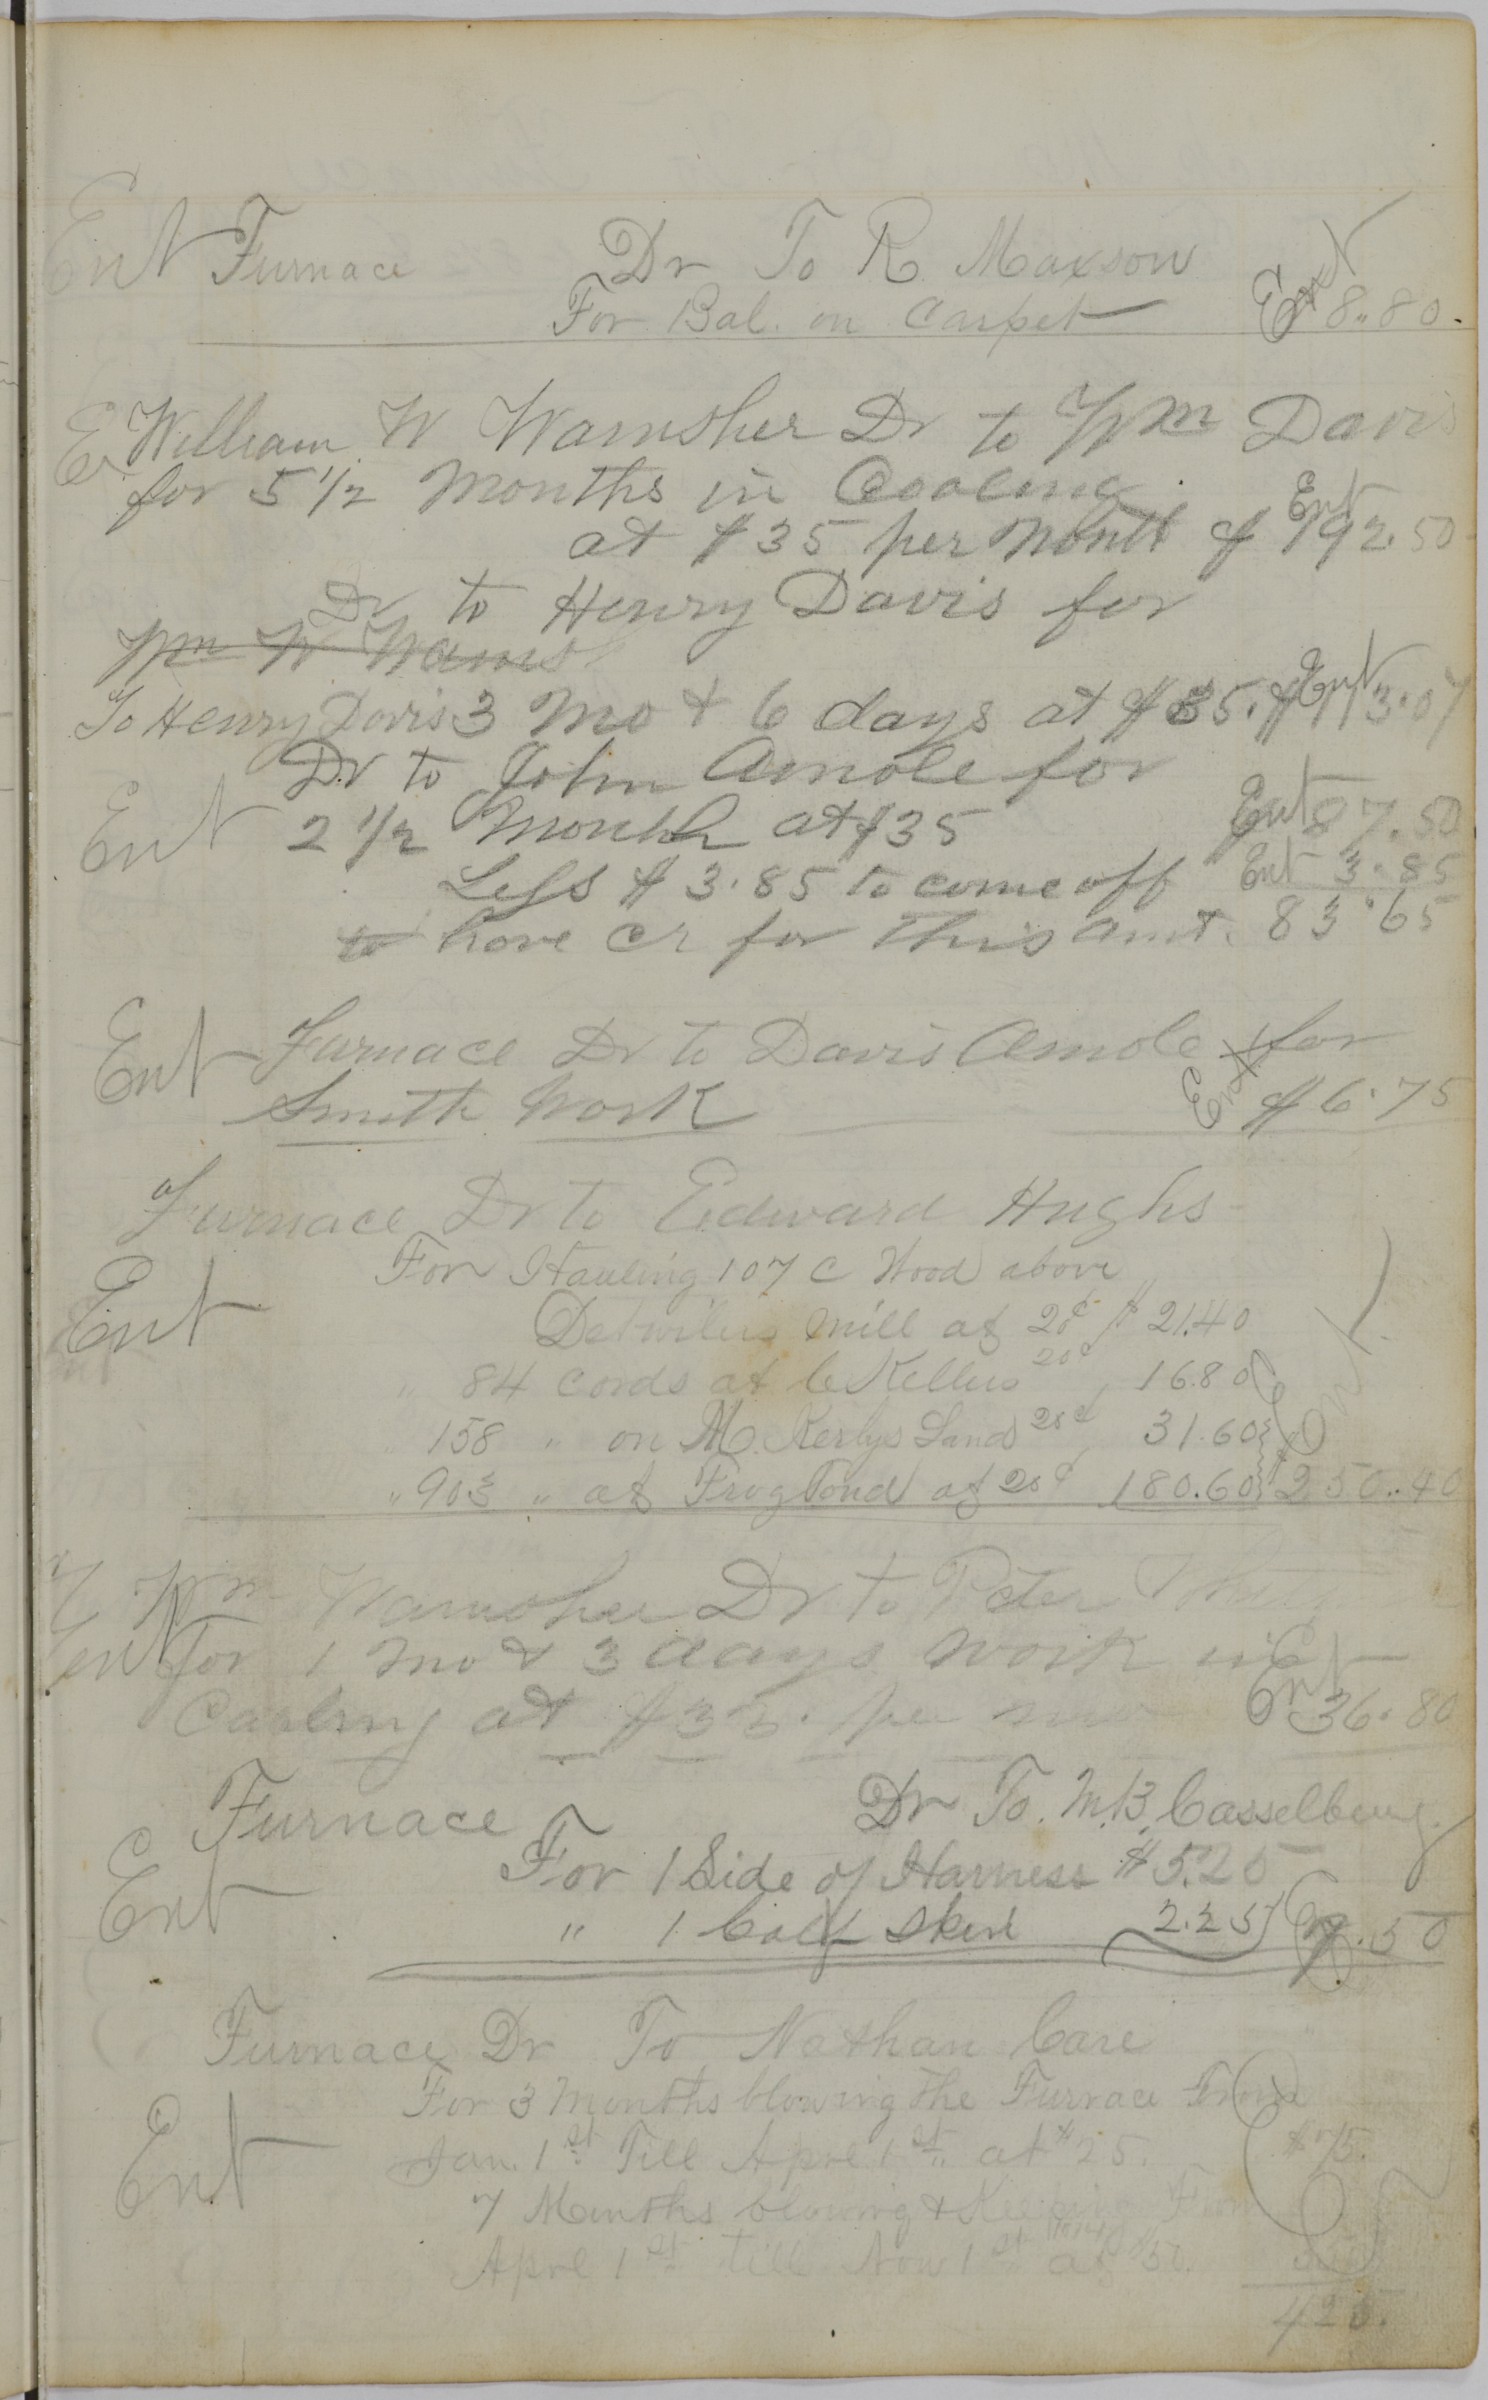 Ent Furnace Dr To R. Maxson
For Bal. on Carpet Ent 8..80.
E William W Wamsher Dr to Wm Davis
for 5 1/2 Months in Coaling Ent
at $35 per Month $ 192.50
Dr to Henry Davis for
Wm W Wams
To Henry Davis 3 Mo & 6 days at $35. $ Ent 113.07
Dr to John Amole for
Ent 2 1/2 Month at $35 Ent 87.50
Less $3.85 to come off Ent 3.85
to have cr for this amt. 83.65
Ent Furnace Dr to Davis Amole for
Smith Work Ent $6.75
Furnace Dr to Edward Hughs
For Hauling 107 C Wood above
Ent Detwilers Mill at 20¢ $21.40
" 84 cords at C Kellers 20¢ 16.80 Ent
158 " on M. Kerbys Land 20¢ 31.60
" 903 " at Frog Pond at 20¢ 180.60 250..40
Wm Wamsher Dr to Peter
Ent for 1 mo & 3 days work in Ent
Coaling at $33. per 36.80
Furnace Dr To. M.B. Casselberry.
Ent For 1 Side of Harness $5.25
" 1 Calf Skin 2.25 7.50
Furnace Dr To Nathan Care
For 3 Months blowing the Furnace From
Ent Jan. 1st Till Aprl 1st at $25. $75.
7 Months blowing &
Aprl 1st till Nov 1st at $50.
425.